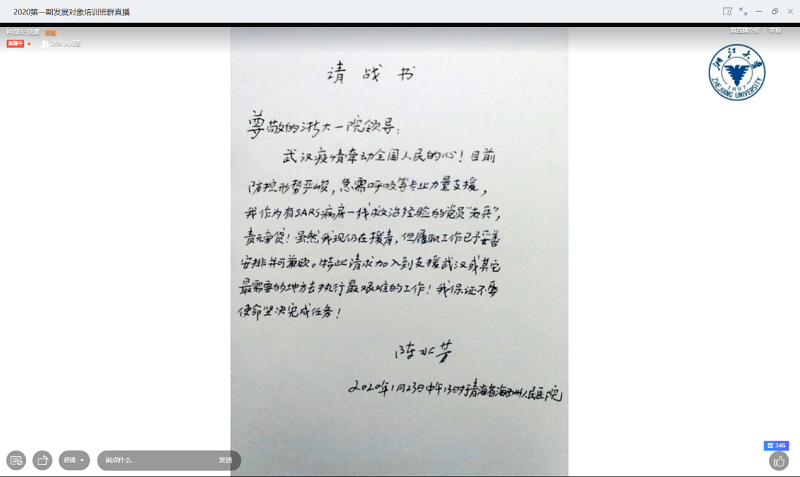 2020第一期发展对象培训班群直播
直播中
请战书
尊敬的浙大一院领导：
武汉疫情牵动全国人民的心！目前
防控形势严峻，急需呼吸等专业力量支援，
我作为有SARS病房一线救治经验的党员“老兵”，
责无旁贷！虽然我现仍在援青，但履职工作已予妥善
安排并可兼顾。特此请求加入到支援武汉或其它
最需要的地方去执行最艰难的工作！我保证不辱
使命坚决完成任务！
陈水芳
2020年1月23日中午13时于青海省海西州人民医院
浙江大学
1897
ZHEJIANG UNIVERSITY
346
邀请
说点什么...
发送